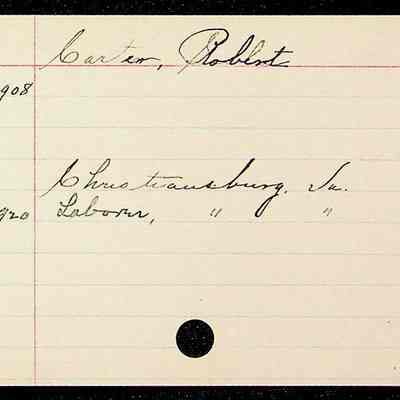 Carter, Robert
908
Christiansburg, Va.
920 Laborer, " "